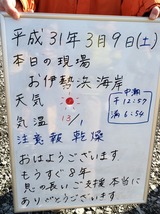 平成31年3月9日(土)
本日の現場
お伊勢浜海岸
天気
気温 13/1
中潮
干 12:57
満 6:54
注意報 乾燥
おはようございます
もうすぐ8年
息の長いご支援 本当に
ありがとうございます